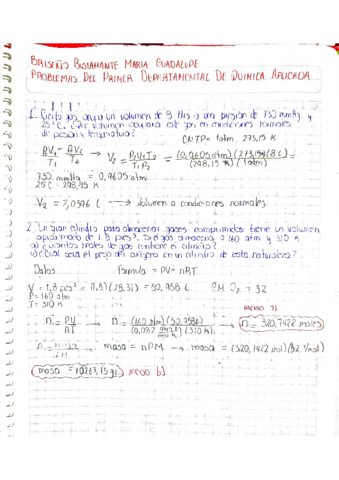 BRISEÑO BUSTAMANTE MARIA GUADALUPE
PROBLEMAS DEL PRIMER DEPARTAMENTAL DE QUIMICA APLICADA
1. Cierto gas ocupa un volumen de 8 litros a una presion de 730 mmHg y
25°C. ¿Que volumen ocupara este gas en condiciones normales
de presion y temperatura?
CNTP= 1atm 273,15 K
P₁V₁/T₁ = P₂V₂/T₂ → V₂ = P₁V₁T₂/T₁P₂ = (0,9605 atm)(273,15K)(8 L)/(298,15 K)(1atm) =
730 mmHg = 0,9605 atm
25°C = 298,15 K
V₂ = 7,0396 L → Volumen a condiciones normales
2. Un gran cilindro para almacenar gases comprimidos tiene un volumen
aproximado de 1.8 pies³. Si el gas almacena a 160 atm y 310 K
a) ¿Cuantos moles de gas contiene el cilindro?
b) ¿Cual sera el peso del oxigeno en un cilindro de esta naturaleza?
Datos Formula = PV= nRT
V = 1,8 pies³ = (1,8)(28,31) = 50,958 L PM O₂ = 32
P= 160 atm
T= 310 K
inciso a)
n = PV/RT → n = (160 atm)(50,958L)/(0,082)(310 K) → n= 320,7422 moles
n = masa → masa = nPM → masa = (320,7422 mol)(32 g/mol)
masa = 10263,75 gr inciso b)